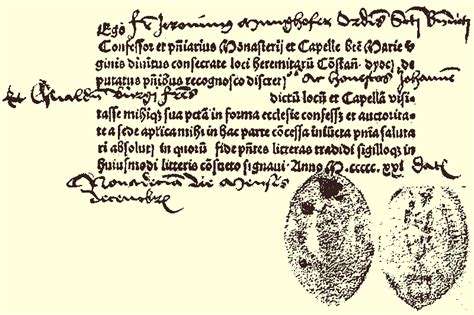 Ego Fr Jeronimus Munghofer Ordis Scti Bndicti
Confessor et pñiarius Monasterij et Capelle btē Marie v
ginis diuinitus consecrate loci heremitarū Cōstan̄ dyoc̄ de
putatus pñibus recognosco discret Ac honestos Johannē
Et frēs dictū locū et Capellā visi
tasse mihiqȝ sua pctā in forma ecclesie confessi et auctoritate
a sede aplica mihi in hac parte cōcessa iniūcta pñia saluta
ri absolui in quorū fide pñtes litteras tradidi sigilloqȝ in
huiusmodi litteris cōsueto signaui Anno M ccccc xxi Dat
die Mensis
decembris